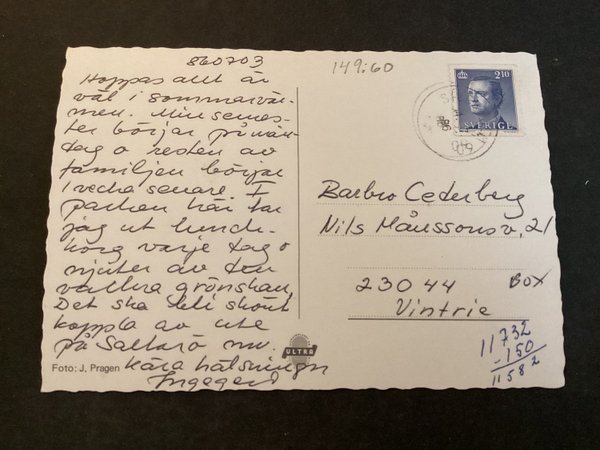 860703
Hoppas allt är
väl i sommarvär-
men. Min semes-
ter börjar på mån-
dag o resten av
familjen börjar
1 vecka senare. I
parken här tar
jag ut lunch-
korg varje dag o
njuter av den
vackra grönskan.
Det ska bli skönt
koppla av ute
på Saltarö nu.
Kära hälsningar
Ingegerd
Foto: J. Pragen
ULTRA
149:60
2.10
SVERIGE
Barbro Cederberg
Nils Månssonsv. 21
23044
BOX
Vintrie
11732
-150
11582